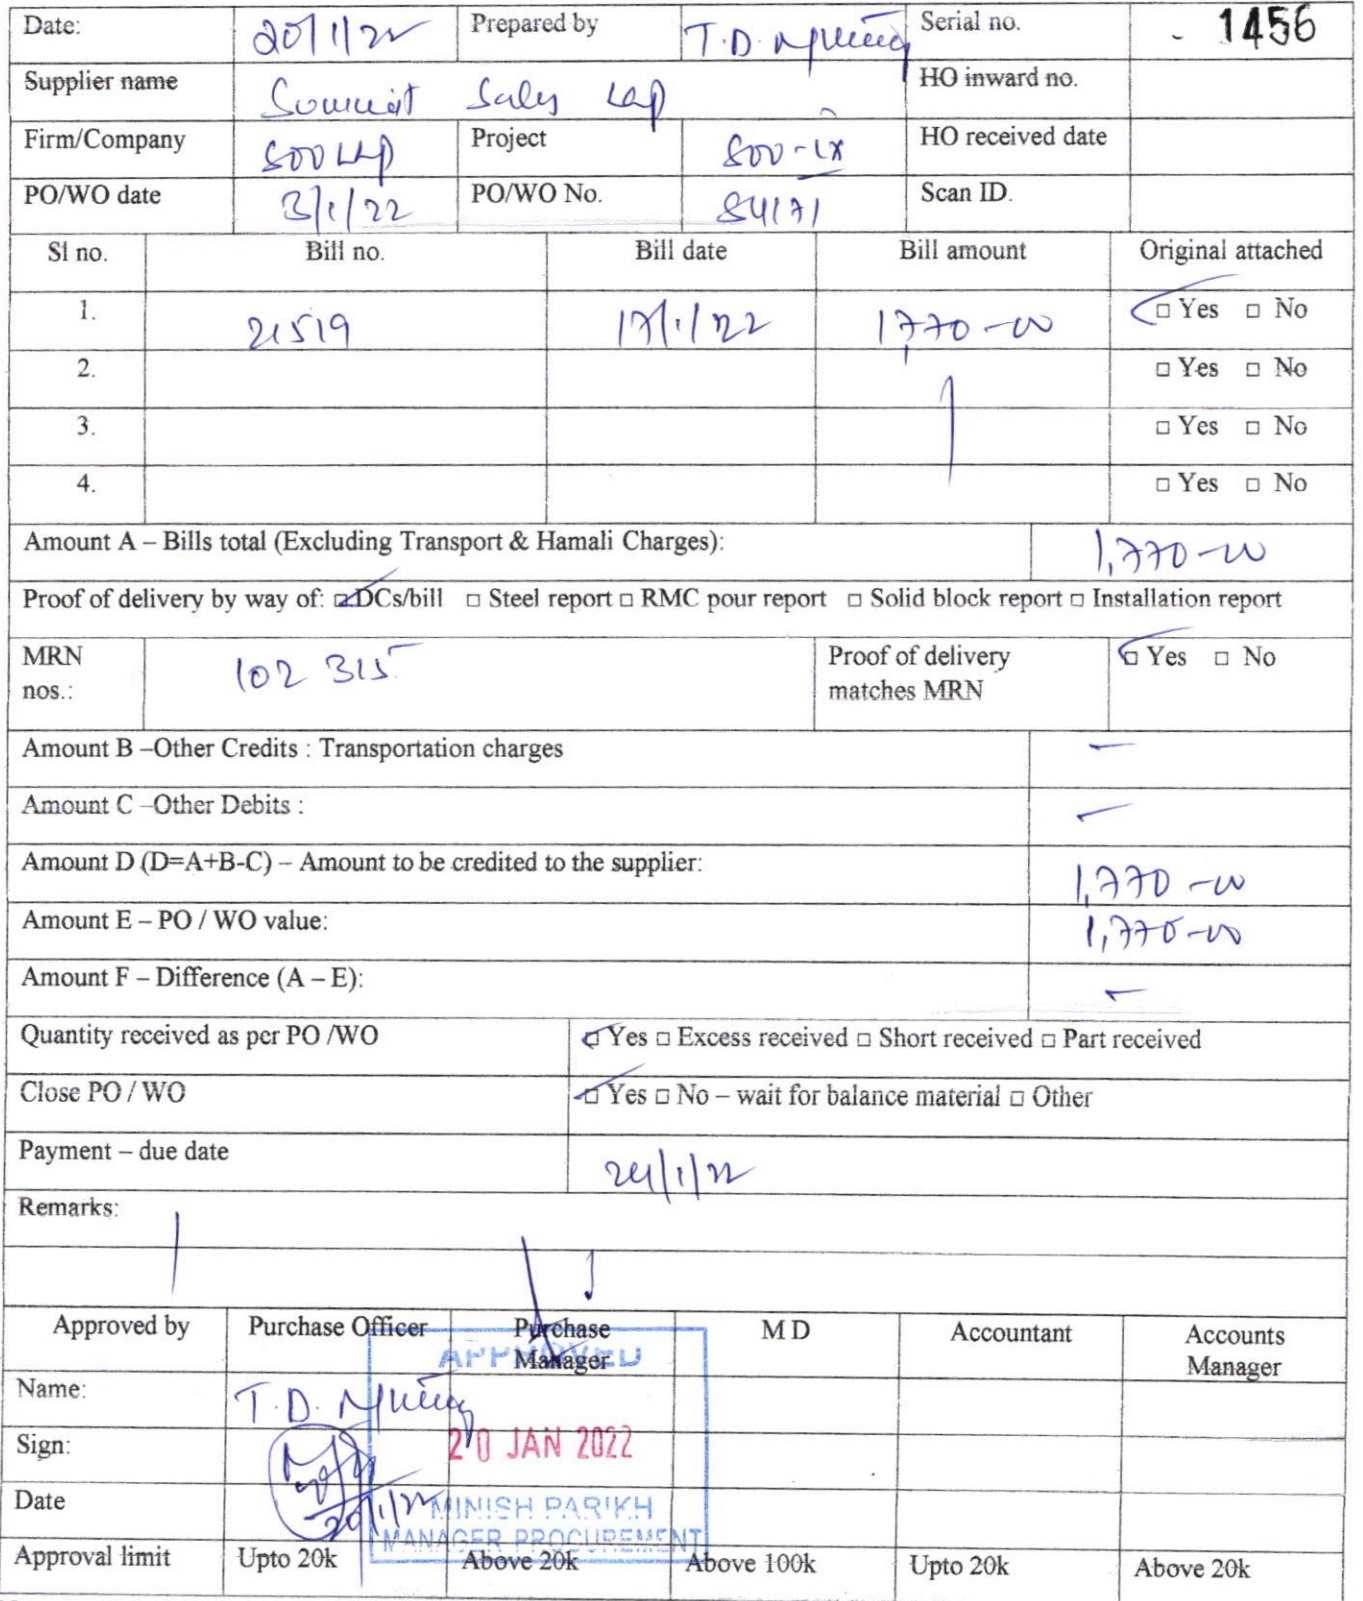 Date: 20/1/22 Prepared by T.D. Serial no. - 1456
Supplier name Summit Sales LLP HO inward no.
Firm/Company SOV LLP Project SOV-IX HO received date
PO/WO date 3/1/22 PO/WO No. 84171 Scan ID.
Sl no. Bill no. Bill date Bill amount Original attached
1. 21519 17/1/22 1,770-00 □ Yes □ No
2. □ Yes □ No
3. □ Yes □ No
4. □ Yes □ No
Amount A – Bills total (Excluding Transport & Hamali Charges): 1,770-00
Proof of delivery by way of: □ DCs/bill □ Steel report □ RMC pour report □ Solid block report □ Installation report
MRN nos.: 102 315 Proof of delivery matches MRN □ Yes □ No
Amount B –Other Credits : Transportation charges –
Amount C –Other Debits : –
Amount D (D=A+B-C) – Amount to be credited to the supplier: 1,770-00
Amount E – PO / WO value: 1,770-00
Amount F – Difference (A – E): –
Quantity received as per PO /WO □ Yes □ Excess received □ Short received □ Part received
Close PO / WO □ Yes □ No – wait for balance material □ Other
Payment – due date 24/1/22
Remarks:
Approved by Purchase Officer Purchase Manager M D Accountant Accounts Manager
APPROVED
Name: T.D.
Sign: 20 JAN 2022
Date 20/1/22 MINISH PARIKH
MANAGER PROCUREMENT
Approval limit Upto 20k Above 20k Above 100k Upto 20k Above 20k